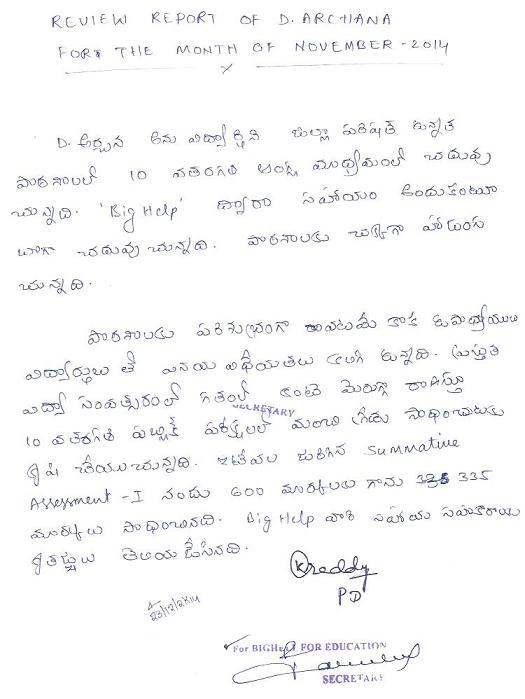 REVIEW REPORT OF D. ARCHANA
FOR THE MONTH OF NOVEMBER - 2014
X
D. అర్చన అను విద్యార్థిని జిల్లా పరిషత్ ఉన్నత
పాఠశాలలో 10 వతరగతి ఆంగ్ల మాధ్యమంలో చదువు
చున్నది. 'Big Help' ద్వారా సహాయం అందుకుంటూ
బాగా చదువుచున్నది. పాఠశాలకు చక్కగా హాజరుగు
చున్నది.
పాఠశాలకు పరిశుభ్రంగా రావటమే కాక ఉపాధ్యాయులు
విద్యార్థులు తో వినయ విధేయతలు కలిగి ఉన్నది. ప్రస్తుత
విద్యా సంవత్సరంలో గతంలో కంటె మెరుగ్గా రాణిస్తూ
SECRETARY
10 వతరగతి పబ్లిక్ పరీక్షలలో మంచి గ్రేడు సాధించుటకు
కృషి చేయుచున్నది. ఇటీవల జరిగిన Summative
Assessment - I నందు 600 మార్కులకు గాను 335
మార్కులు సాధించినది. Big Help వారి సహాయ సహకారాలకు
కృతజ్ఞతలు తెలియజేసినది.
Kreddy
PD
23/12/2K14
For BIGHelP FOR EDUCATION
SECRETARY